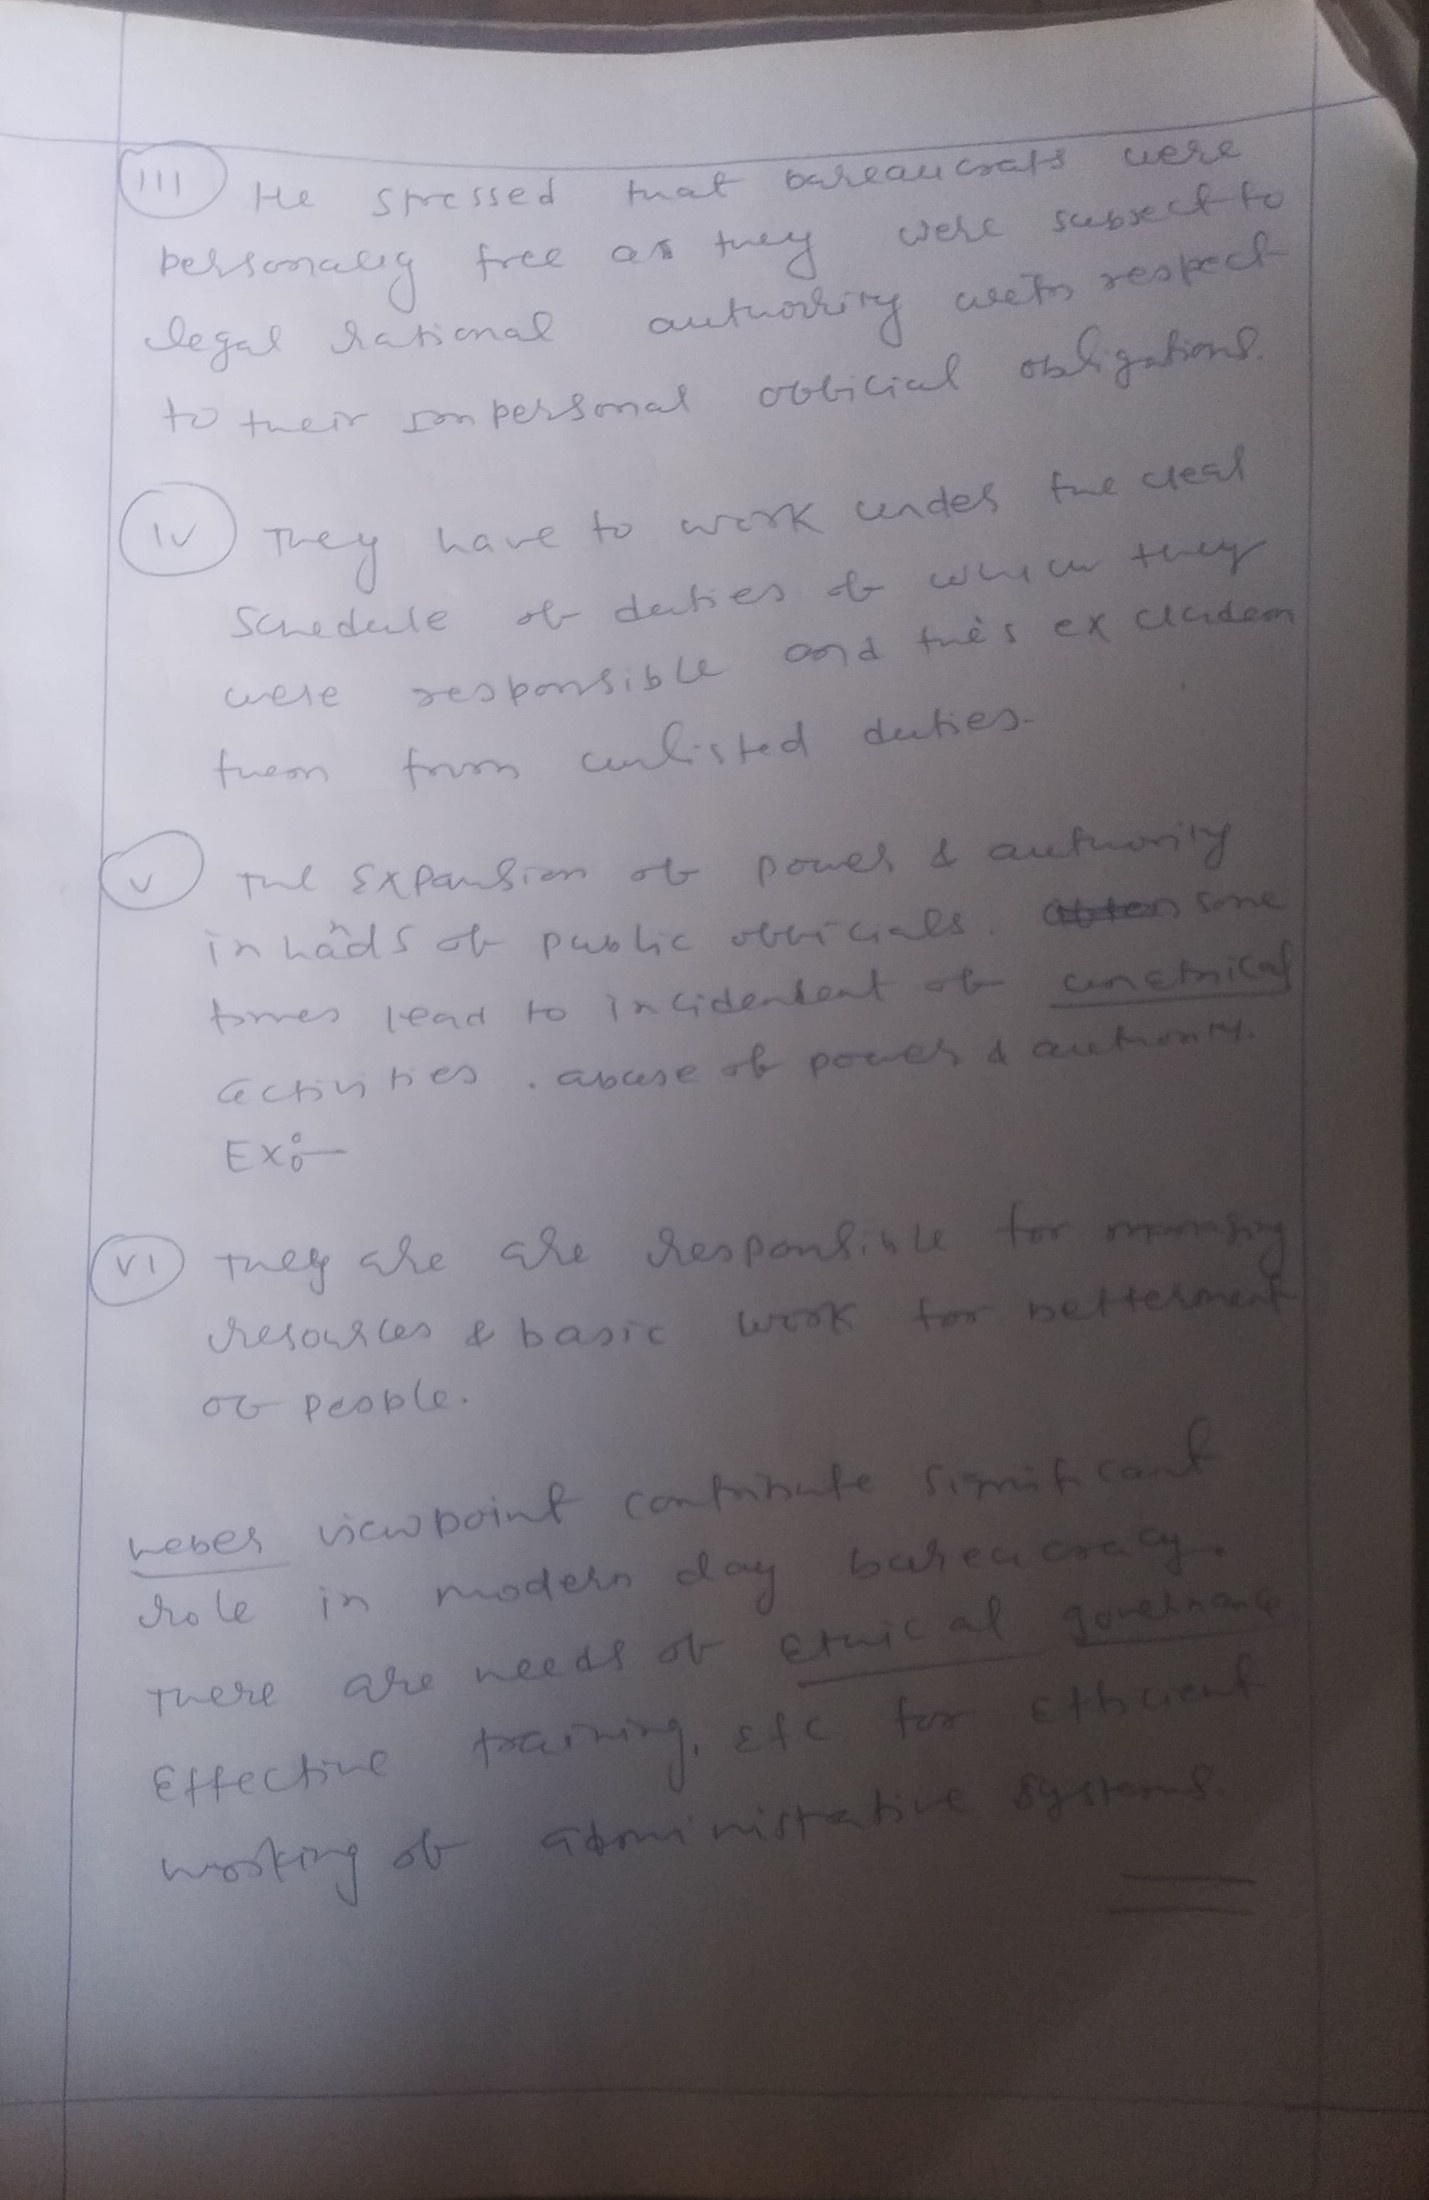 III He stressed that bareaucrats were
personally free as they were subject to
legal rational authority with respect
to their impersonal official obligations.
IV They have to work under the clear
schedule of duties of which they
were responsible and this ex cludem
them from unlisted duties.
V The Expansion of power & authority
in hands of public officials. some
times lead to incidentent of unethical
activities. abuse of power & authority.
Ex:-
VI They are are responsible for managing
resources & basic work for betterment
of people.
Weber viewpoint contribute significant
role in modern day bureaucracy.
There are needs of Ethical governance
Effective training, Etc for Efficient
working of administrative systems.